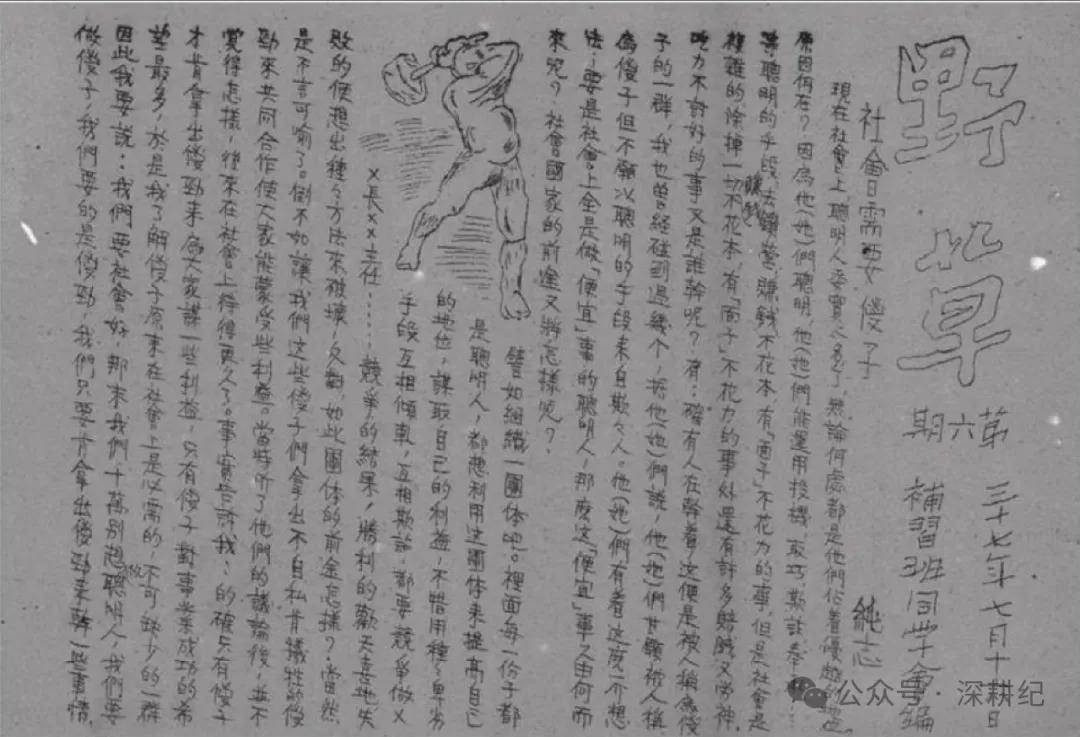 野草
第六期
三十七年七月十日
補習班同学會編
社會需要傻子
純志
現在社會上聰明人委實太多了，無論何處都是他們佔着優越的地位，
原因何在？因為他(她)們聰明，他(她)們能運用投機，取巧，欺詐，奉……
等聰明的手段，去鑽營，賺錢不花本，有「面子」不花力的事，但是社會是
複雜的，除掉一切不花本，有「面子」不花力的事外還有許多賠錢又勞神，
吃力不討好的事又是誰幹呢？有，確有人在幹着，這便是被人稱為傻
子的一群，我也曾經碰到過幾个，据他(她)們說，他(她)們甘願被人稱
為傻子但不願以聰明的手段來自欺欺人。他(她)們有着這麽一个想
法：要是社會上全是做「便宜」事的聰明人，那麽這「便宜」事又由何而
來呢？社會國家的前途又將怎樣呢？
譬如組織一團体吧。裡面每一份子都
是聰明人，都想利用这團体來提高自己
的地位，謀取自己的利益，不惜用種種卑劣
手段互相傾軋，互相欺詐，都要競爭做乂
乂長乂乂主任……競爭的結果，勝利的歡天喜地失
敗的便想出種種方法來破壞，反對，如此團体的前途怎樣？當然
是不言可喻了。倒不如讓我們这些傻子們拿出不自私肯犧牲的傻
勁來共同合作使大家能蒙受些利益。當時听了他們的議論後，並不
覺得怎樣，後來在社會上待得更久了。事實告訴我，的確只有傻子
才肯拿出傻勁來為大家謀一些利益，只有傻子對事業成功的希
望最多，於是我了解傻子原來在社會上是必需的，不可缺少的一群
因此我要說：我們要社會好，那末我們千萬別想做聰明人，我們要
做傻子，我們要的是傻勁，我們只要肯拿出傻勁來幹一些事情，
公众号·深耕纪